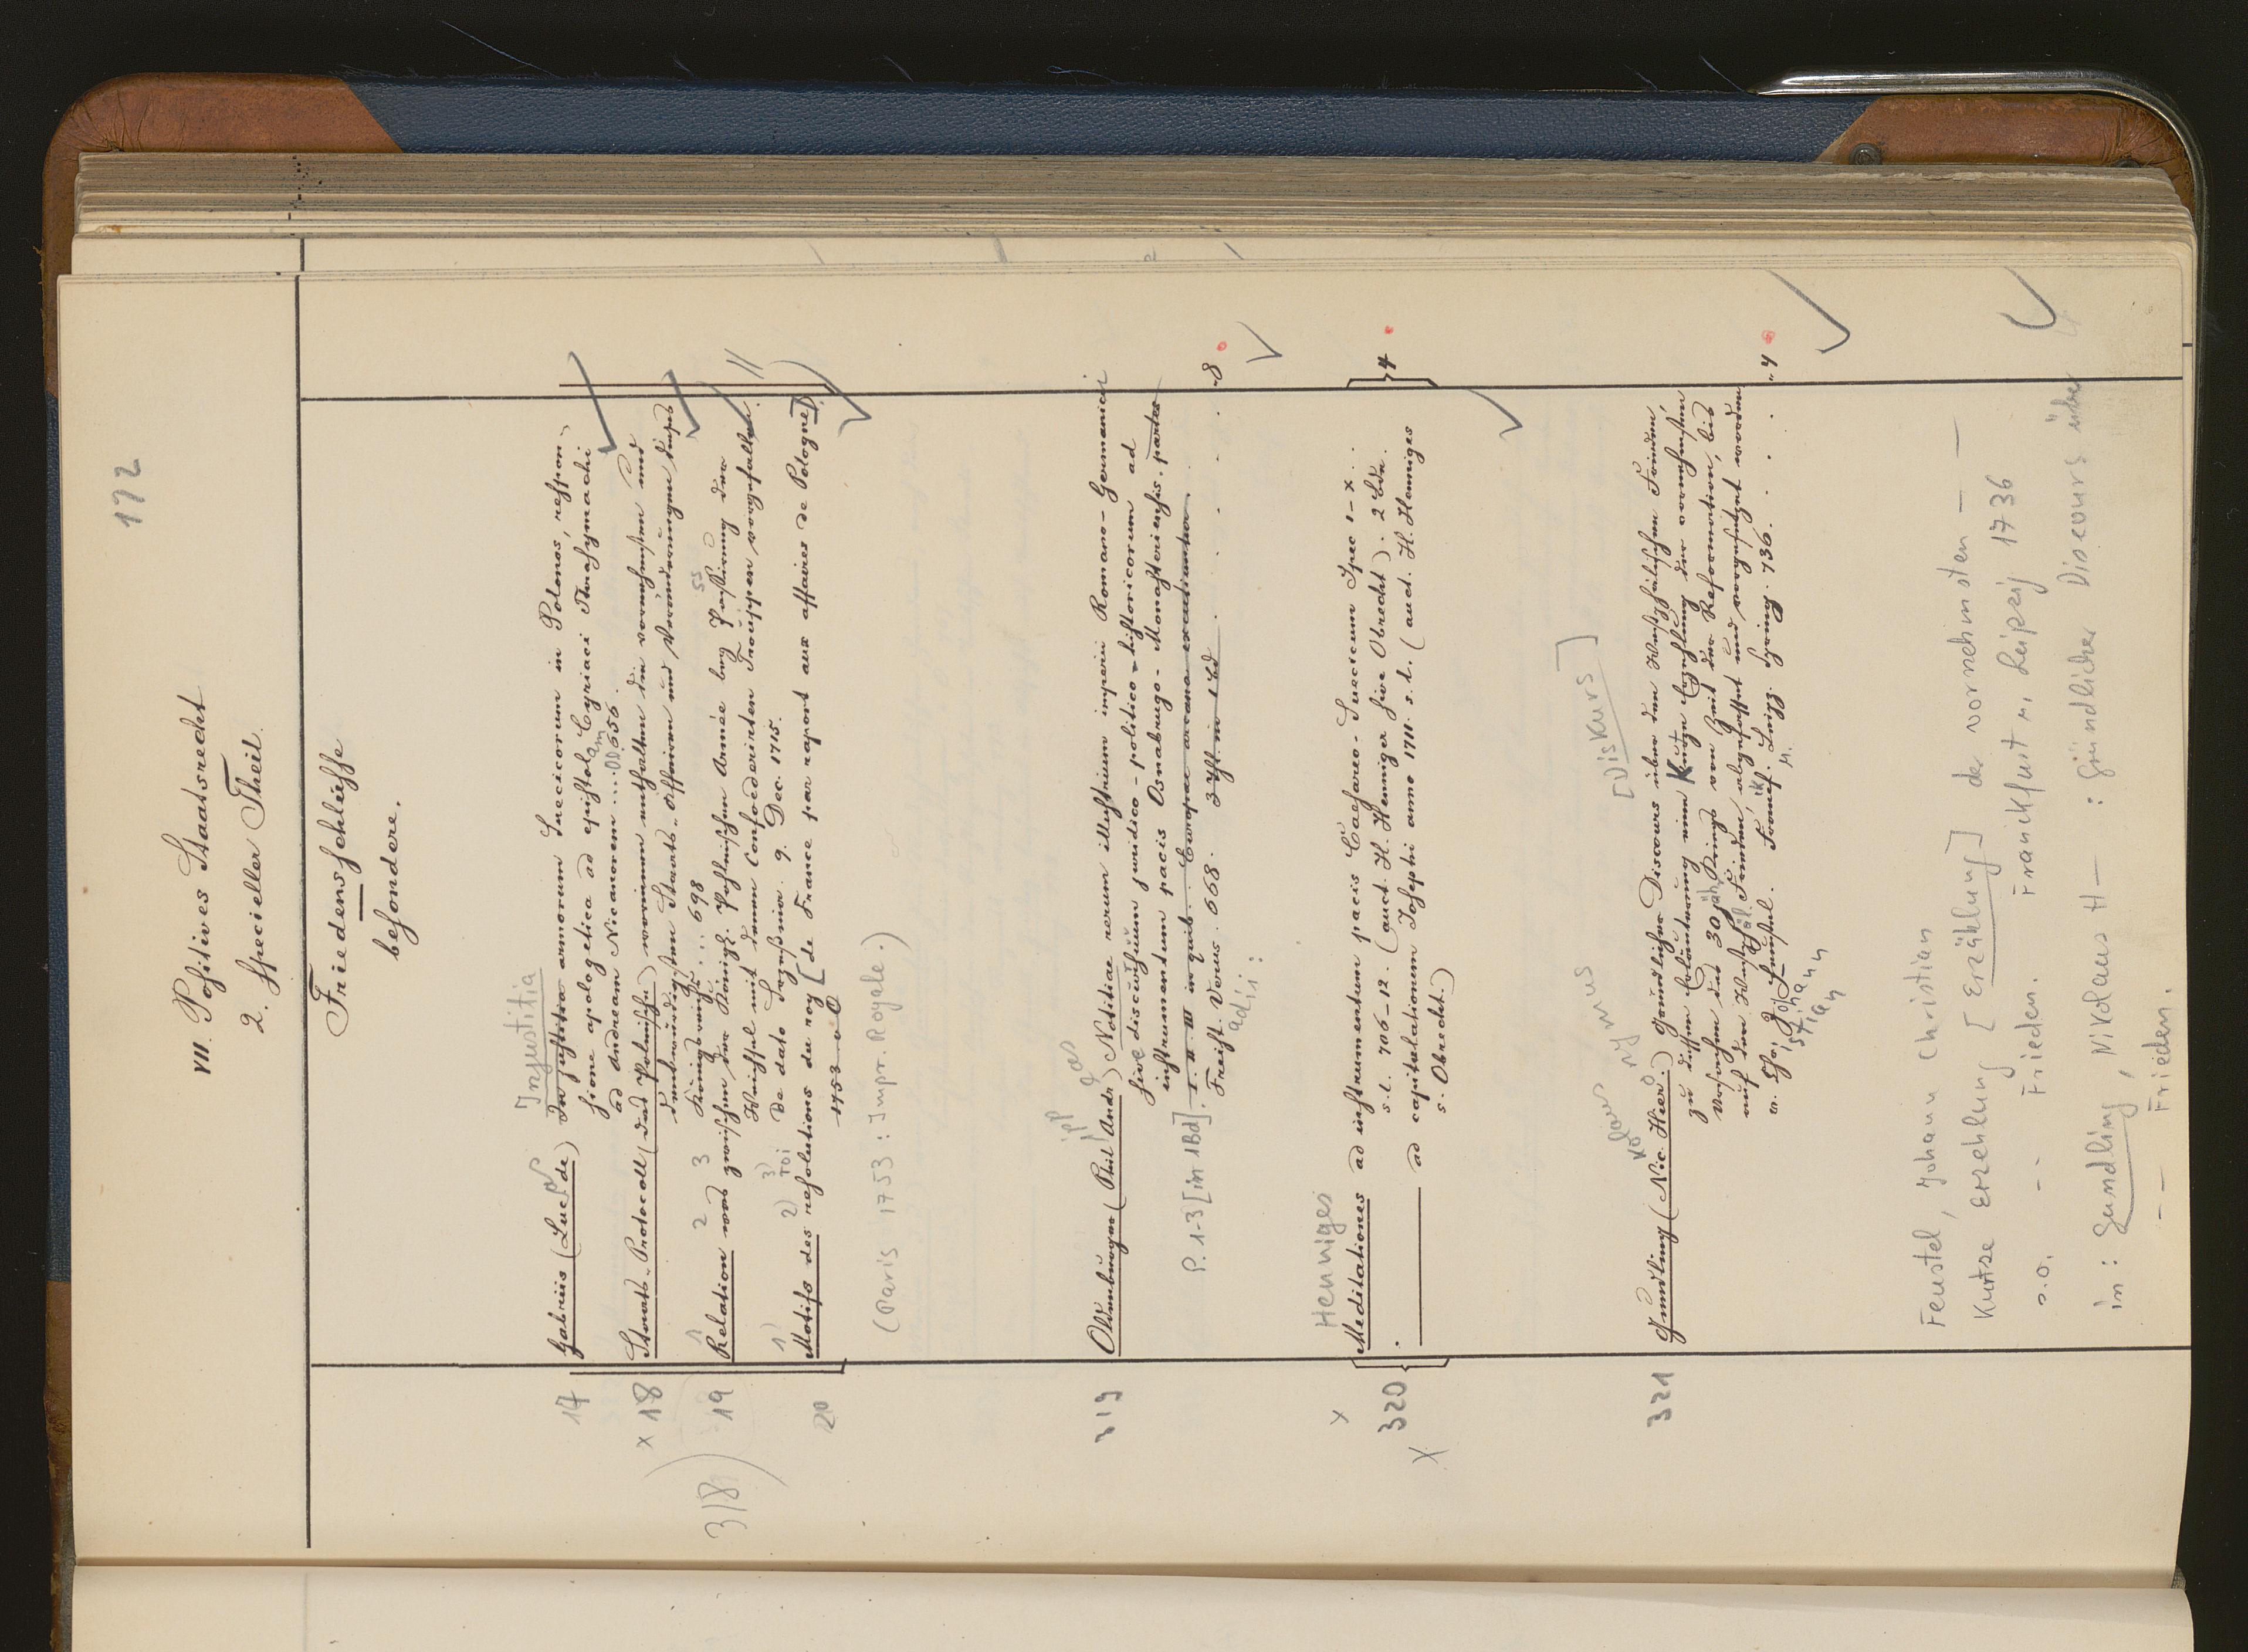 172
VII. Positives Staatsrecht
2. Specieller Theil.
Friedensschlüsse
besondere.
Injustitia
17 Gabriis (Luc. de) In justitia armorum Suecicorum in Polonos, respon-
sione apologetica ad epistolam Cyriaci Thrasymachi
ad Andream Nicanorem .... 656.
x 18 Staats-Protocoll (das Polnische) worinnen enthalten die vornehmsten und
denkwürdigsten Staats-Affairen und Veränderungen dieses
Königreichs ... 698
318) 19 Relation was zwischen der Königl. Pohlnischen Armée bey Passirung der
Weichsel mit denen Confoederirten Trouppen vorgefallen.
De dato 9. Dec. 1715.
20 Motifs des resolutions du roy [de France par raport aux affaires de Pologne].
1753
(Paris 1753: Impr. Royale.)
319 Oldenburger (Phil. Andr.) Notitiae rerum illustrium imperii Romano-Germanici
sive discursuum juridico-politico-historicorum ad
instrumentum pacis Osnabrugo-Monasteriensis. partes
P. 1-3 [in 1Bd]. I. II. III in quib. Europae arcana excutiuntur.
Freist. Verus. 668. 3 Thl. in 1 Bd. 8
adii:
Henniges
x 320 Meditationes ad instrumentum pacis Caesareo-Suecicum Spec I-X...
s.l. 706-12. (auct. H. Henniger sive Obrecht). 2 Bde. 4
x ad capitulationum Josephi anno 1711. s.l. (auct. H. Henniges
s. Obrecht.)
[Diskurs]
321 Gundling (Nic. Hier.) Gründlicher Discours über den Westphälischen Frieden,
zu dessen Erläuterung eine Kurtze Erzehlung der vornehmsten
Ursachen des 30jähr. Kriegs von Zeit der Reformation, bis
auf den Westphäl. Frieden, abgefasset und vorgesetzet worden
v. Feustel. Franckf. Leipz. Spring. 736. 4
Feustel, Johann Christian
Kurtze Erzehlung [Erzählung] der vornehmsten –
–– Frieden. Franckfurt u. Leipzig 1736
s.o.
in: Gundling, Nikolaus H–: Gründlicher Discours über
–– Frieden.